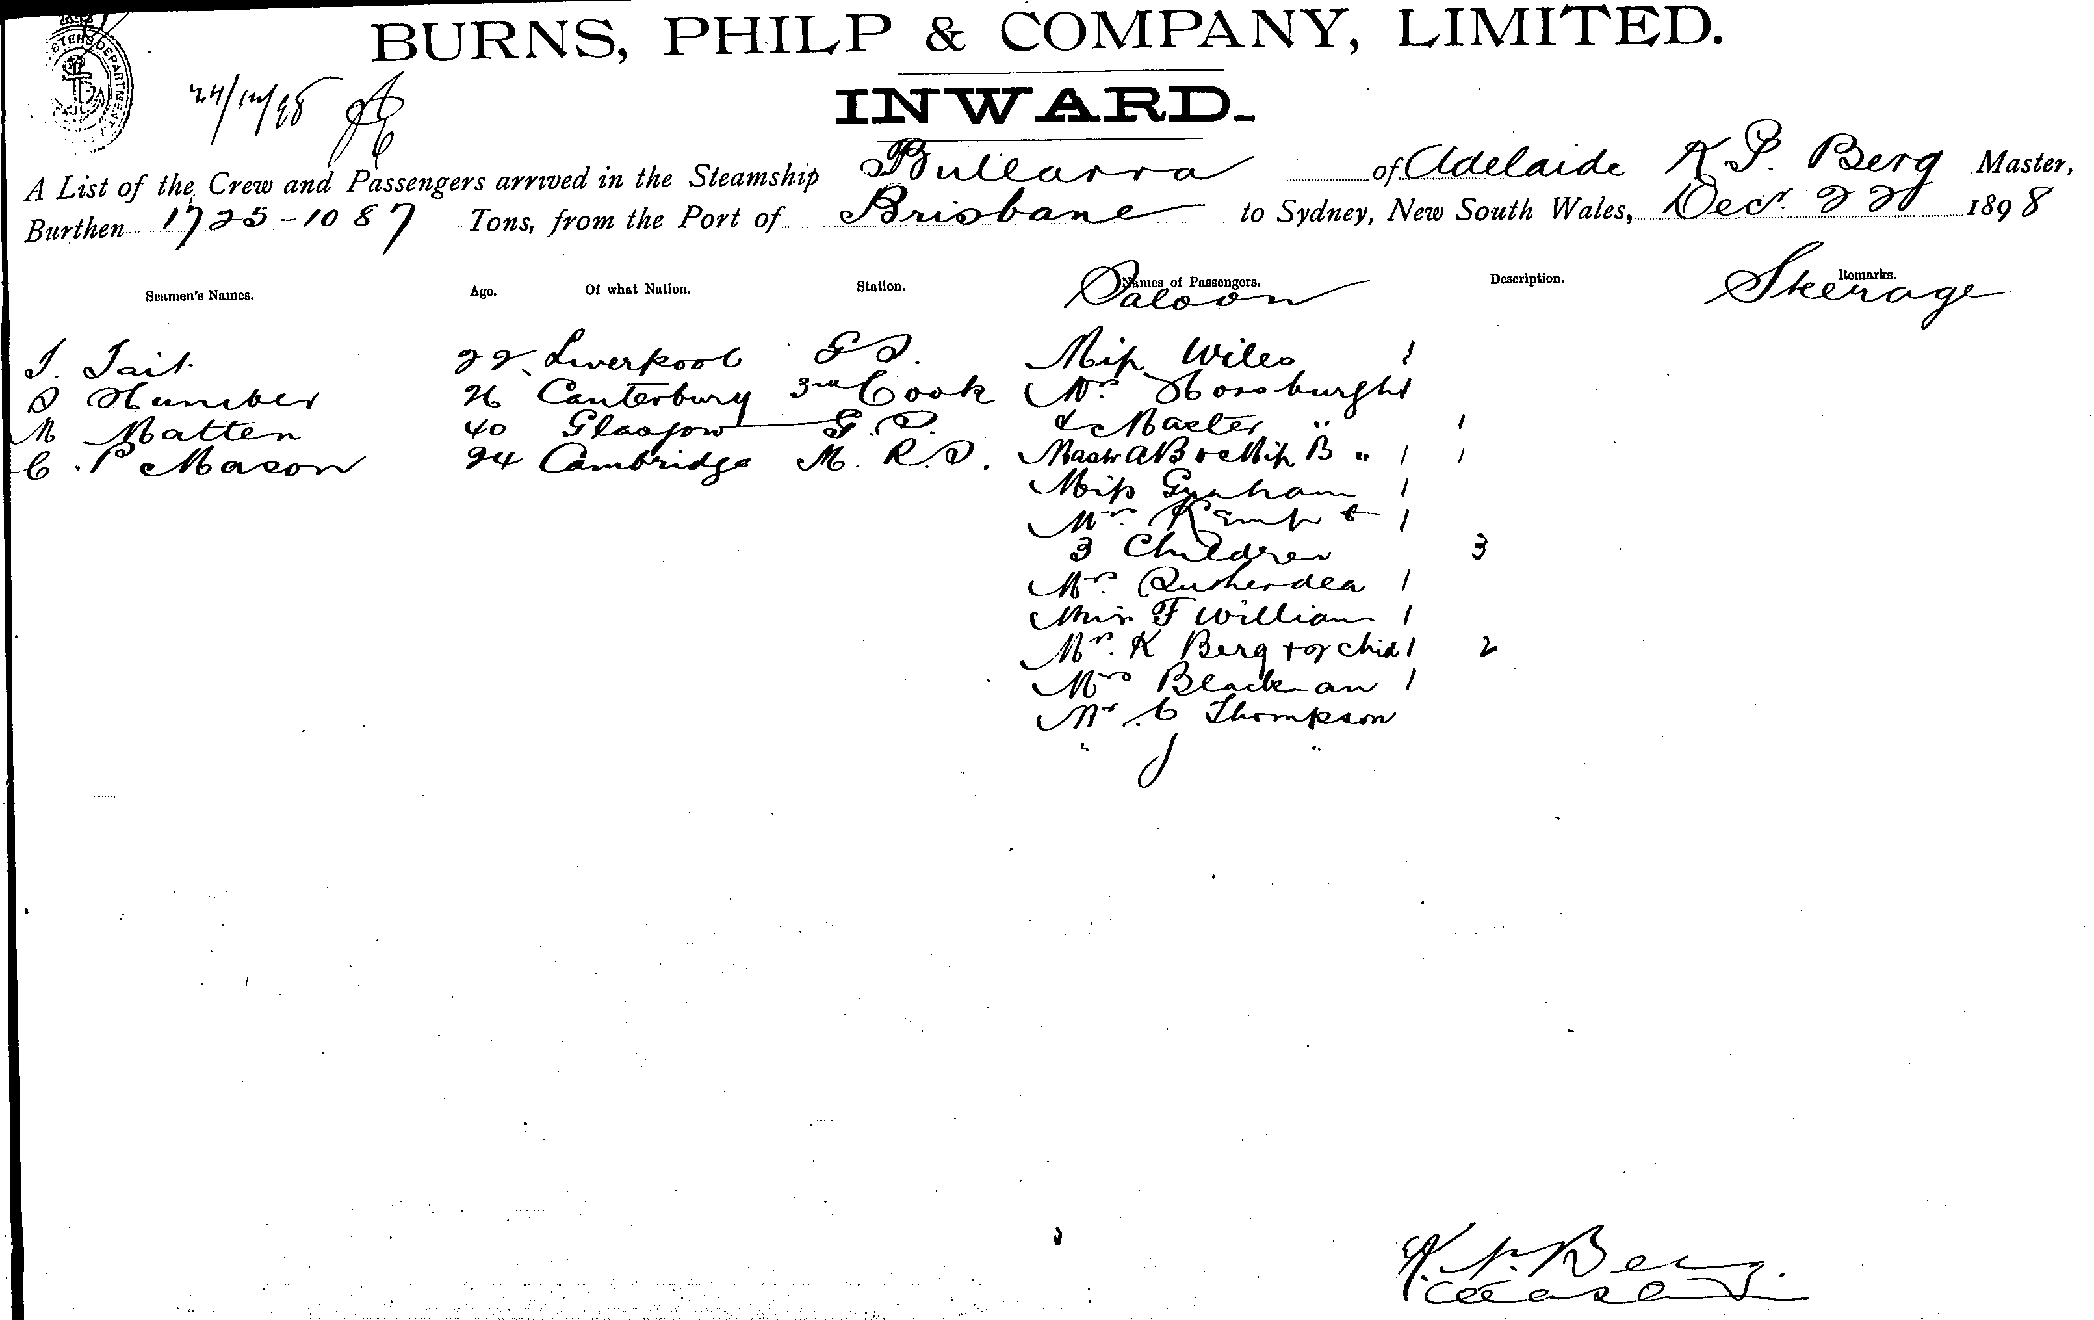 BURNS, PHILP & COMPANY, LIMITED.
24/12/98
INWARD.
A List of the Crew and Passengers arrived in the Steamship Bullarra of Adelaide K S. Berg Master,
Burthen 1725-1087 Tons, from the Port of Brisbane to Sydney, New South Wales, Decr. 22 1898
Seamen's Names. Age. Of what Nation. Station. Names of Passengers. Description. Remarks.
Saloon Steerage
J. Tait 22 Liverpool G S. Miss Wiles 1
S Humber 26 Canterbury 3rd Cook Mrs Horsburgh 1
M Matten 40 Glasgow G. S. & Master " 1
C. P Mason 24 Cambridge M. R. S. Mastr AB & Miss B " 1 1
Miss 1
Mrs. Kemp & 1
3 Children 3
Mrs. 1
Miss F William 1
Mrs. K Berg + 2 Chid 1 2
Mrs Blackman 1
Mr C Thompson
" J "
K. S. Berg.